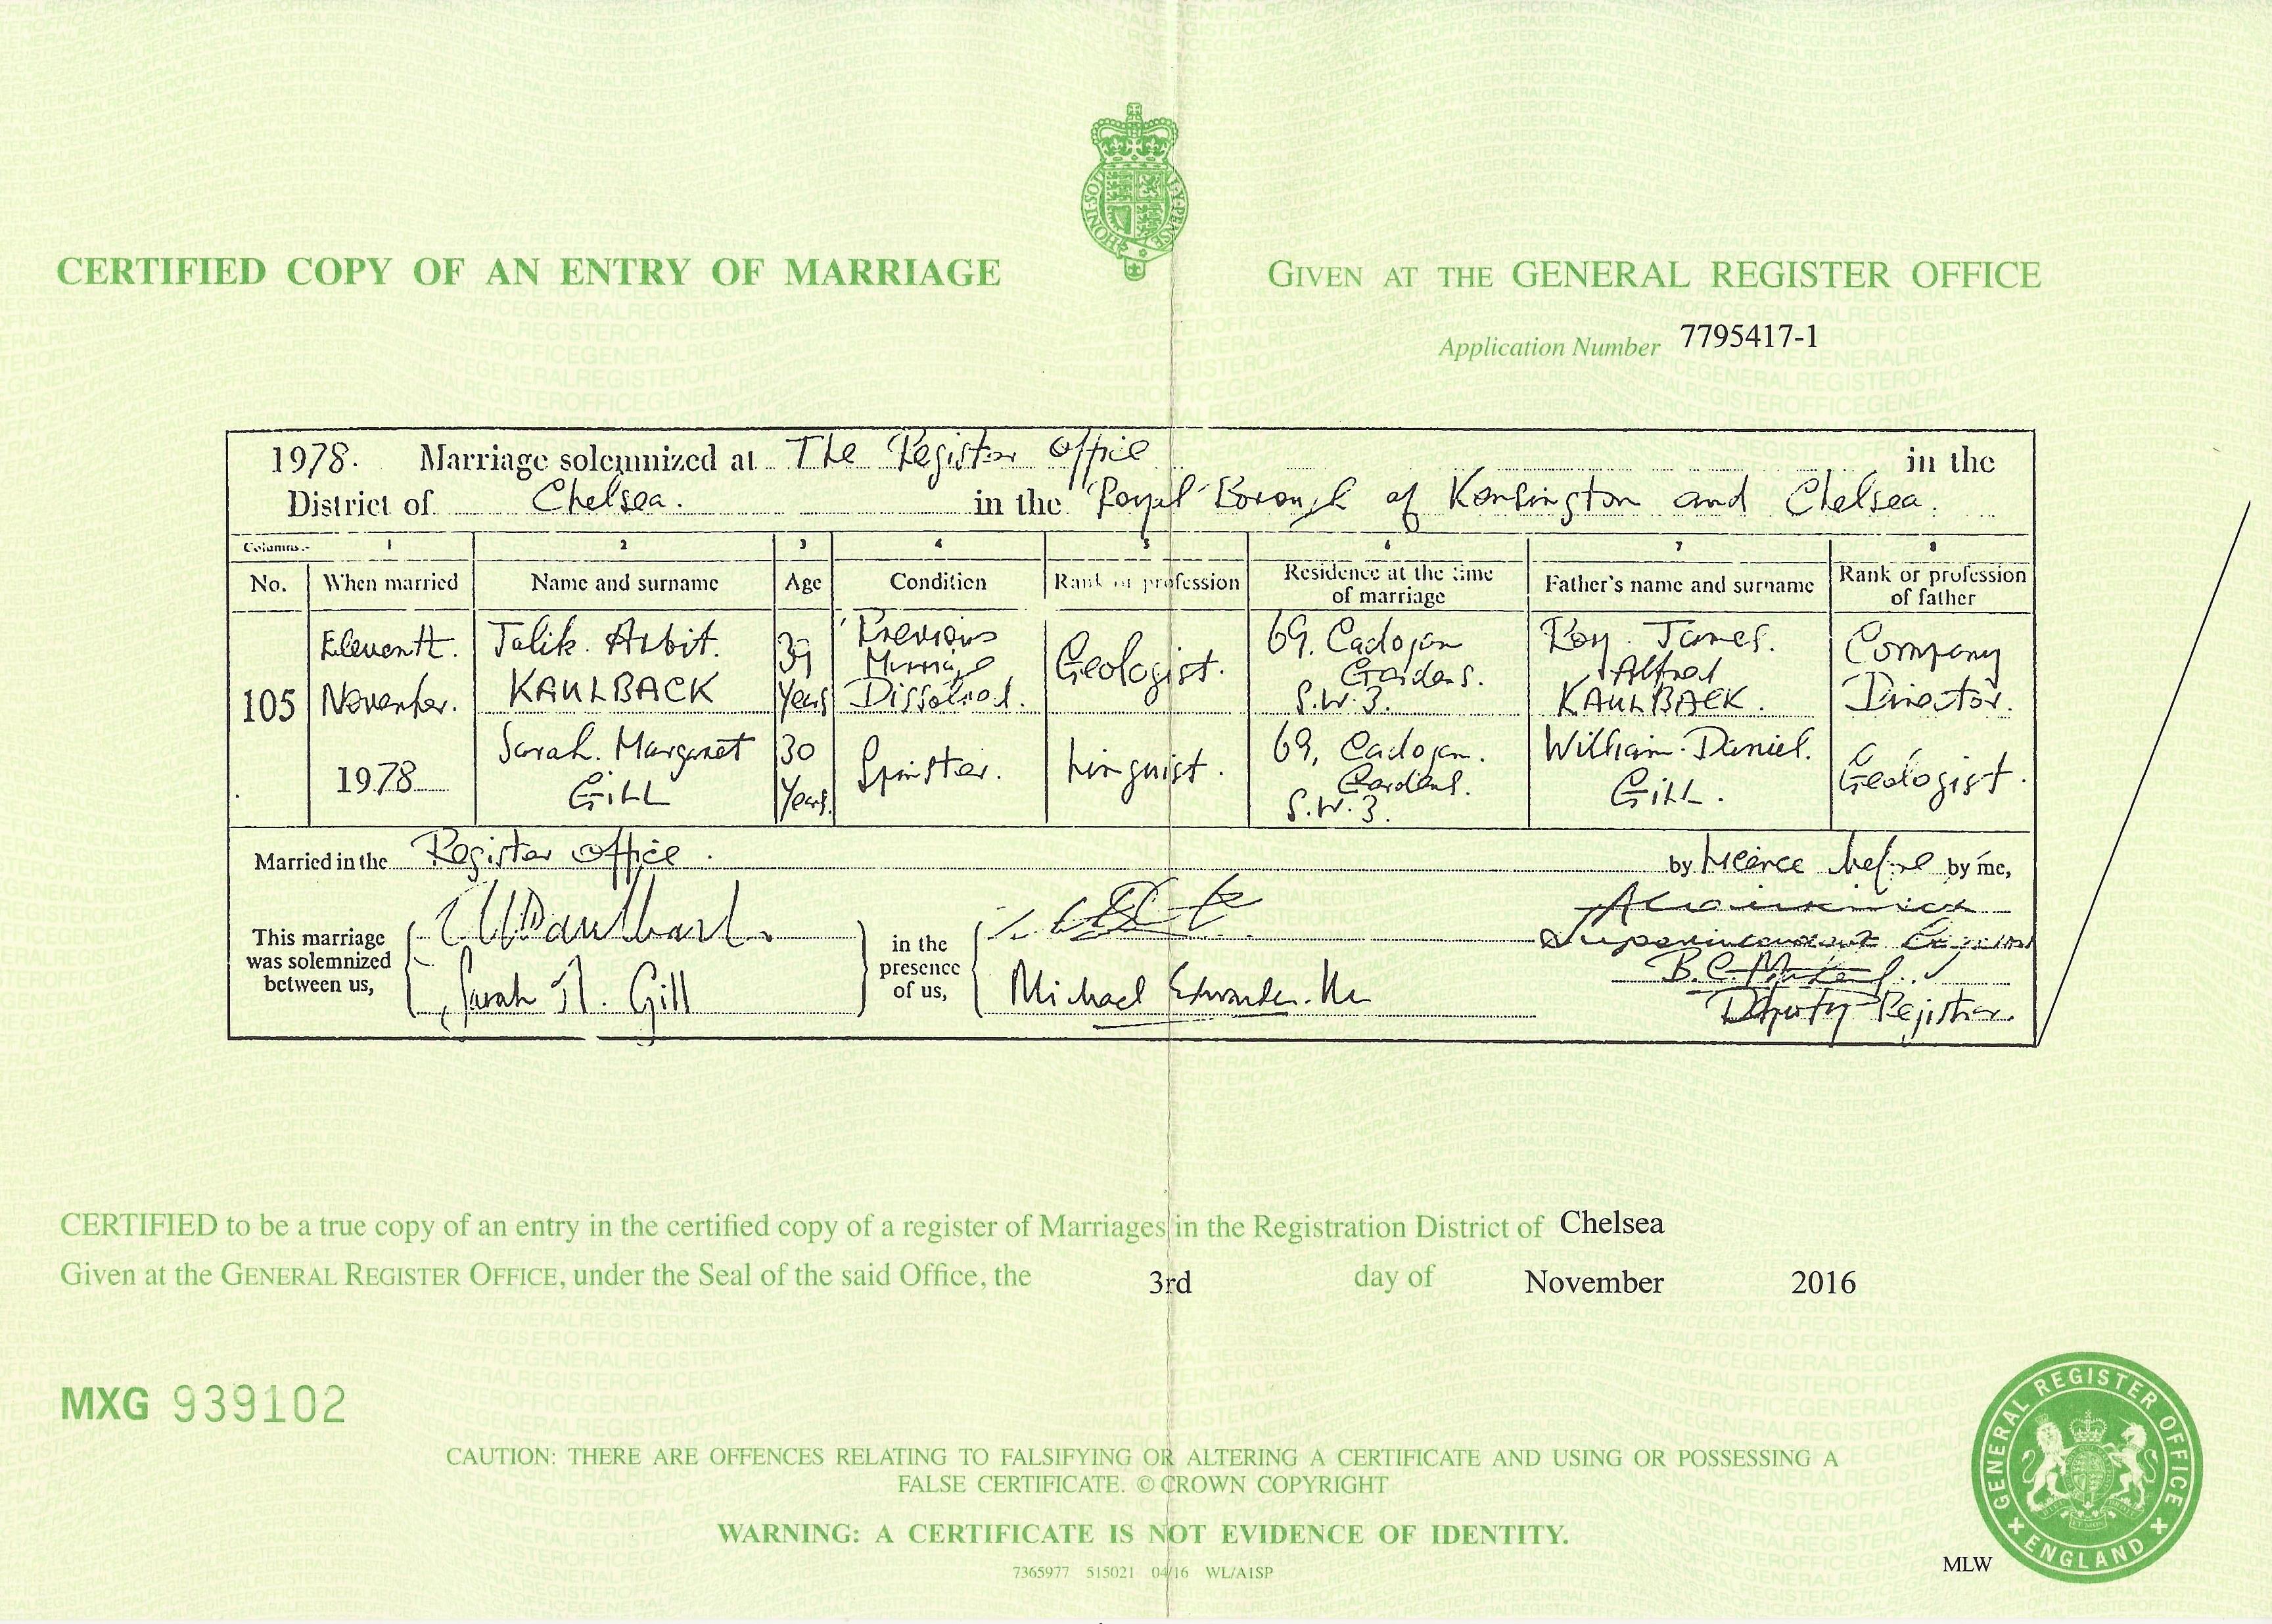 CERTIFIED COPY OF AN ENTRY OF MARRIAGE
GIVEN AT THE GENERAL REGISTER OFFICE
Application Number 7795417-1
1978. Marriage solemnized at The Register Office in the
District of Chelsea. in the Royal Borough of Kensington and Chelsea.
Columns:- 1 2 3 4 5 6 7 8
No. When married Name and surname Age Condition Rank or profession Residence at the time of marriage Father's name and surname Rank or profession of father
105
Eleventh.
November.
1978
Arbit.
KAULBACK
39
Years
Previous
Marriage
Dissolved.
Geologist.
69. Cadogan
Gardens.
S.W.3.
Roy. James.
Alfred
KAULBACK.
Company
Director.
Sarah. Margaret
GILL
30
Years
Spinster.
Linguist.
69, Cadogan.
Gardens.
S.W.3.
William. Daniel.
GILL.
Geologist.
Married in the Register Office. by licence before by me,
This marriage
was solemnized
between us,
Sarah M. Gill
in the
presence
of us,
Michael
Superintendent Registrar
Deputy Registrar.
CERTIFIED to be a true copy of an entry in the certified copy of a register of Marriages in the Registration District of Chelsea
Given at the GENERAL REGISTER OFFICE, under the Seal of the said Office, the 3rd day of November 2016
MXG 939102
CAUTION: THERE ARE OFFENCES RELATING TO FALSIFYING OR ALTERING A CERTIFICATE AND USING OR POSSESSING A
FALSE CERTIFICATE. © CROWN COPYRIGHT
WARNING: A CERTIFICATE IS NOT EVIDENCE OF IDENTITY.
7365977 515021 04/16 WL/AISP
MLW
GENERAL REGISTER OFFICE
ENGLAND